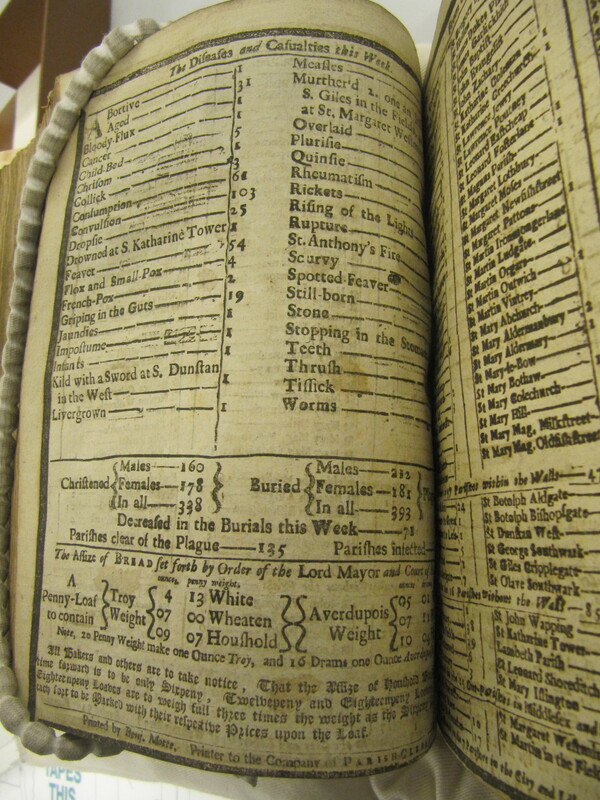 The Diseases and Casualties this Week.
Abortive 1
Aged 31
Bloody-Flux 1
Cancer 1
Child-Bed 5
Chrisom 1
Collick 3
Consumption 61
Convulsion 103
Dropsie 25
Drowned at S. Katharine Tower 1
Feaver 54
Flox and Small-Pox 4
French-Pox 2
Griping in the Guts 19
Jaundies 1
Impostume 1
Infants
Kild with a Sword at S. Dunstan
in the West 1
Livergrown 1
Measles
Murther'd 2. one in
S. Giles in the Field
at St. Margaret
Overlaid
Plurisie
Quinsie
Rheumatism
Rickets
Rising of the Lights
Rupture
St. Anthony's Fire
Scurvy
Spotted-Feaver
Still-born
Stone
Stopping in the
Teeth
Thrush
Tissick
Worms
Christened Males 160 Females 178 In all 338
Buried Males 212 Females 181 In all 393
Decreased in the Burials this Week 71
Parishes clear of the Plague 135 Parishes infected
The Assize of BREAD set forth by Order of the Lord Mayor and Court of
ounces, penny weight,
A Penny-Loaf to contain Troy Weight
4 13 White
07 00 Wheaten
09 07 Houshold
Averdupois Weight
05
07
10
Note, 20 Penny Weight make one Ounce Troy, and 16 Drams one Ounce
All Bakers and others are to take notice, That the Assize of
time forward is to be only Sixpeny, Twelvepeny and Eighteenpeny
Eighteenpeny Loaves are to weigh full three times the weight as the Sixpeny
each sort to be Marked with their respective Prices upon the Loaf.
Printed by Benj. Motte, Printer to the Company of PARISH
St Leonard Eastcheap
St Leonard Fosterlane
St Magnus Parish
St Margaret Lothbury
St Margaret Moses
St Margaret Newfishstreet
St Margaret Pattons
St Martin Ironmongerlane
St Martin Ludgate
St Martin Orgars
St Martin Outwich
St Martin Vintrey
St Mary Abchurch
St Mary Aldermanbury
St Mary Aldermary
St Mary-le-Bow
St Mary Bothaw
St Mary Colechurch
St Mary Hill
St Mary Mag. Milkstreet
St Mary Mag. Oldfishstreet
Parishes within the Walls
St Botolph Aldgate
St Botolph Bishopsgate
St Dunstan West
St George Southwark
St Giles Cripplegate
St Olave Southwark
Parishes without the Walls
St John Wapping
St Katharine Tower
Lambeth Parish
St Leonard Shoreditch
St Mary Islington
in Middlesex and
St Margaret
St Martin in the
TAPES
THIS